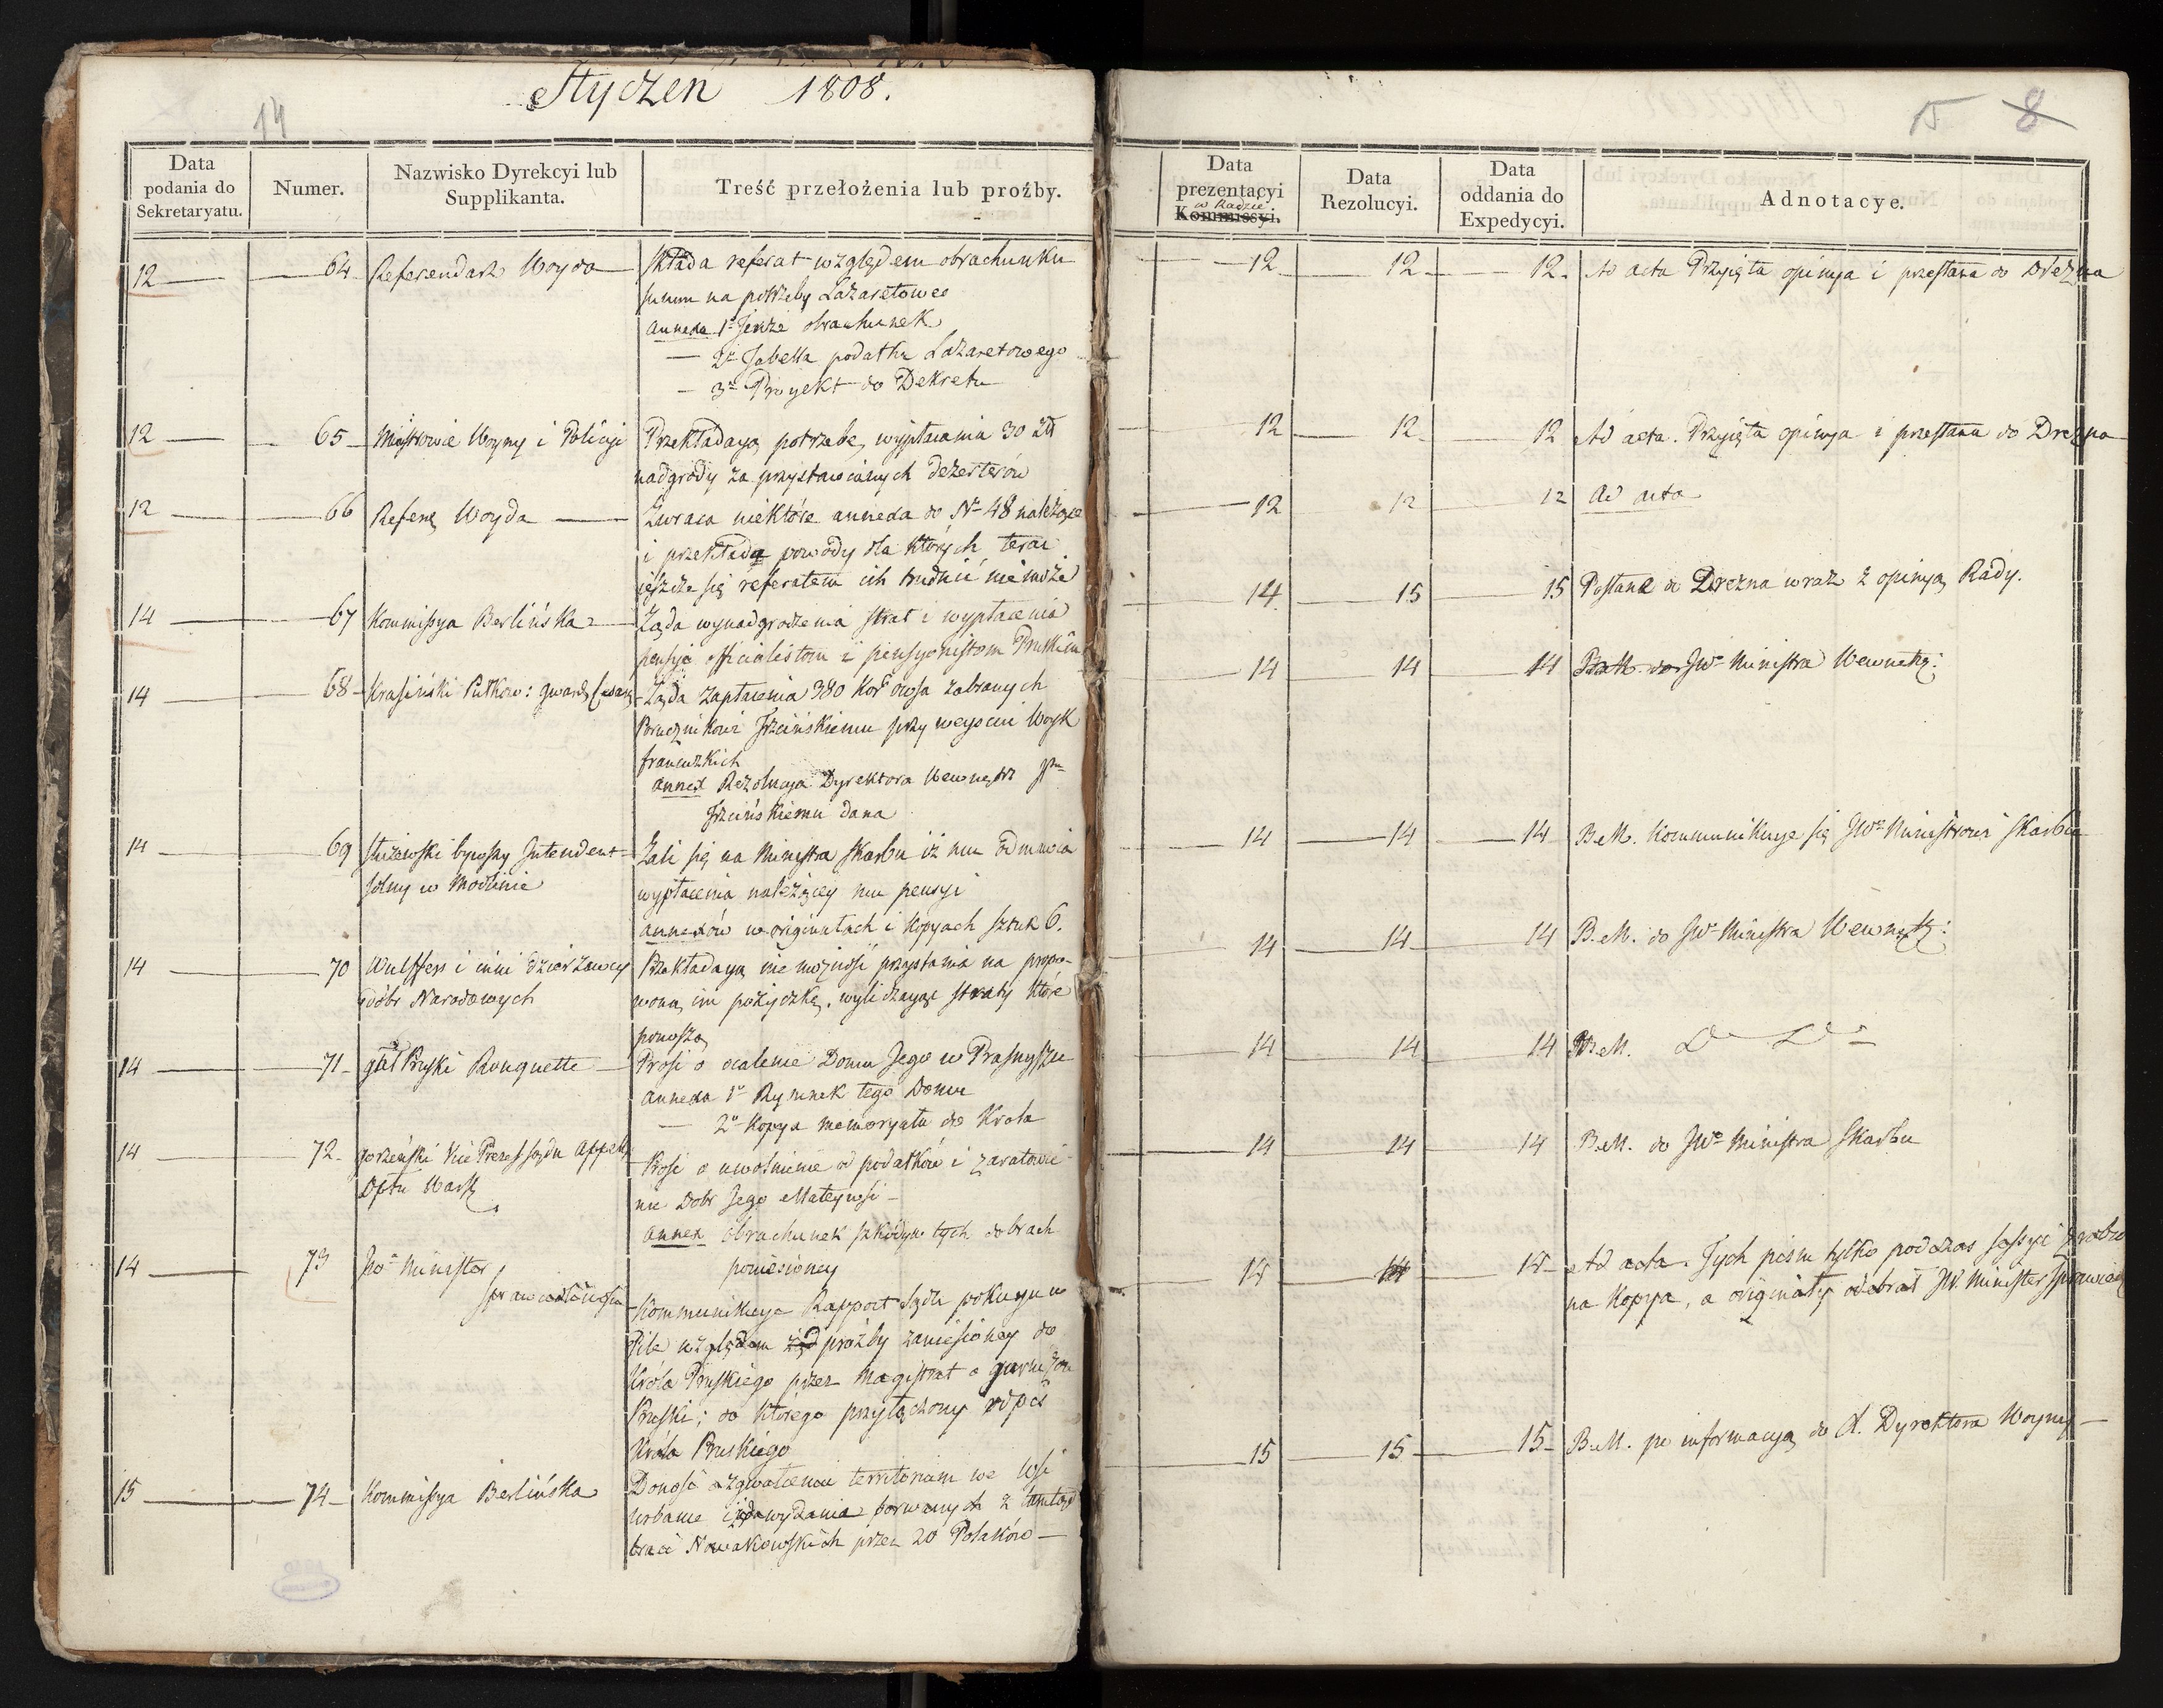 Styczen 1808.
14
Data podania do Sekretaryatu.
Numer.
Nazwisko Dyrekcyi lub Supplikanta.
Treść przełożenia lub proźby.
12 64 Referendarz Woyda
Składa referat względem obrachunku
summ na potrzeby Lazaretowe
annexa 1º Tenże obrachunek
— 2º Tabella podatku Lazaretowego
— 3º Proyekt do Dekretu
12 65 Mistrowie Woyny i Policyi
Przekładaią potrzebę wypłacenia 30 Zł
nadgrody za przystawionych dezerterów
12 66 Refer. Woyda
Zwraca niektóre annexa do Nº 48 należące
i przekłada powody dla których teraz
ieszcze się referatem ich trudnić nie może
14 67 Kommissya Berlińska
Żąda wynadgrodzenia strat i wypłacenia
pensyi officialistom i pensyonistom Pruskim
14 68 Krasiński Pułkow: gwardy
Żąda zapłacenia 380 Kor owsa zabranych
Porucznikowi Trzcińskiemu przy weyściu Woysk
francuzkich
annex Rezolucya Dyrektora Wewnętrz
Trzcińskiemu dana
14 69 bywszy Intendent
solny w Modlinie
Żali się na Ministra Skarbu iż mu odmawia
wypłacenia należącey mu pensyi
annexów w originałach i kopyach sztuk 6.
14 70 Wulffers i inni dzierżawcy
dóbr Narodowych
Przekładaią nie możność przystania na propo-
wona im pożyczkę, wyliczaiąc straty które
ponoszą
14 71 Pruski Rouquette
Prosi o ocalenie Domu Jego w Prasnyszu
annexa 1º Rysunek tego Domu
— 2º Kopya memoryału do Krola
14 72 Vice Prezes sądu Appell.
Dptu Warsz
Prosi o uwolnienie od podatków i zaratowa-
nie Dobr Jego
annex obrachunek szkody w tych dobrach
poniesioney
14 73 JWº Minister
Sprawiedliwości
Kommunikuye Rapport Sądu pokoyu w
Pile względem prożby zaniesioney do
Króla Pruskiego przez Magistrat o garnizon
Pruski; do którego przyłączony odpis
Króla Pruskiego
15 74 Kommissya Berlińska
Donosi o zgwałceniu territorium we Wsi
Urbanie wydania porwanych z tamtąd
braci Nowakowskich przez 20 Polaków —
15 8
Data prezentacyi Kommissyi. w Radzie.
Data Rezolucyi.
Data oddania do Expedycyi.
Adnotacye.
12 12 12 Ad acta Przyięta opinya i przesłana do Drezna
12 12 12 Ad acta. Przyięta opinya i przesłana do Drezna
12 12 12 Ad acta
14 15 15 Posłane do Drezna wraz z opinyą Rady.
14 14 14 JWº Ministra Wewnętrz:
14 14 14 B.M. kommunikuye się JWº Ministrowi Skarbu
14 14 14 B.M. do JWº Ministra Wewnętrz:
14 14 14 B.M. Dº Dº
14 14 14 B.M. do JWº Ministra Skarbu
Ad acta. Tych pism tylko podczas sessyi
na Kopya, a originały odebrał JW. Minister
15 15 15 B.M. po informacyą do Dyrektora Woyny —